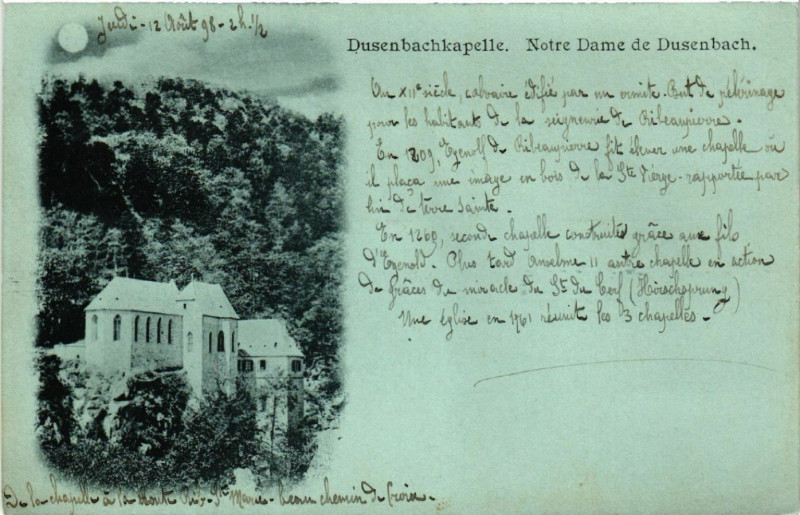 Jeudi - 12 Août 98 - 2h. 1/2
Dusenbachkapelle. Notre Dame de Dusenbach.
Au XIIe siècle, calvaire édifié par un ermite. But de pélérinage
pour les habitants de la seigneurie de Ribeaupierre.
En 1209, Egenolf de Ribeaupierre fit élever une chapelle où
il plaça une image en bois de la Ste Vierge - rapportée par
lui de terre Sainte.
En 1260, seconde chapelle construite grâce aux fils
d'Egenold. Plus tard Anselme II autre chapelle en action
de grâces du miracle du St du Cerf (Hirschsprung)
Une église en 1761 réunit les 3 chapelles.
De la chapelle à la Route Ste Marie - beau chemin de Croix.